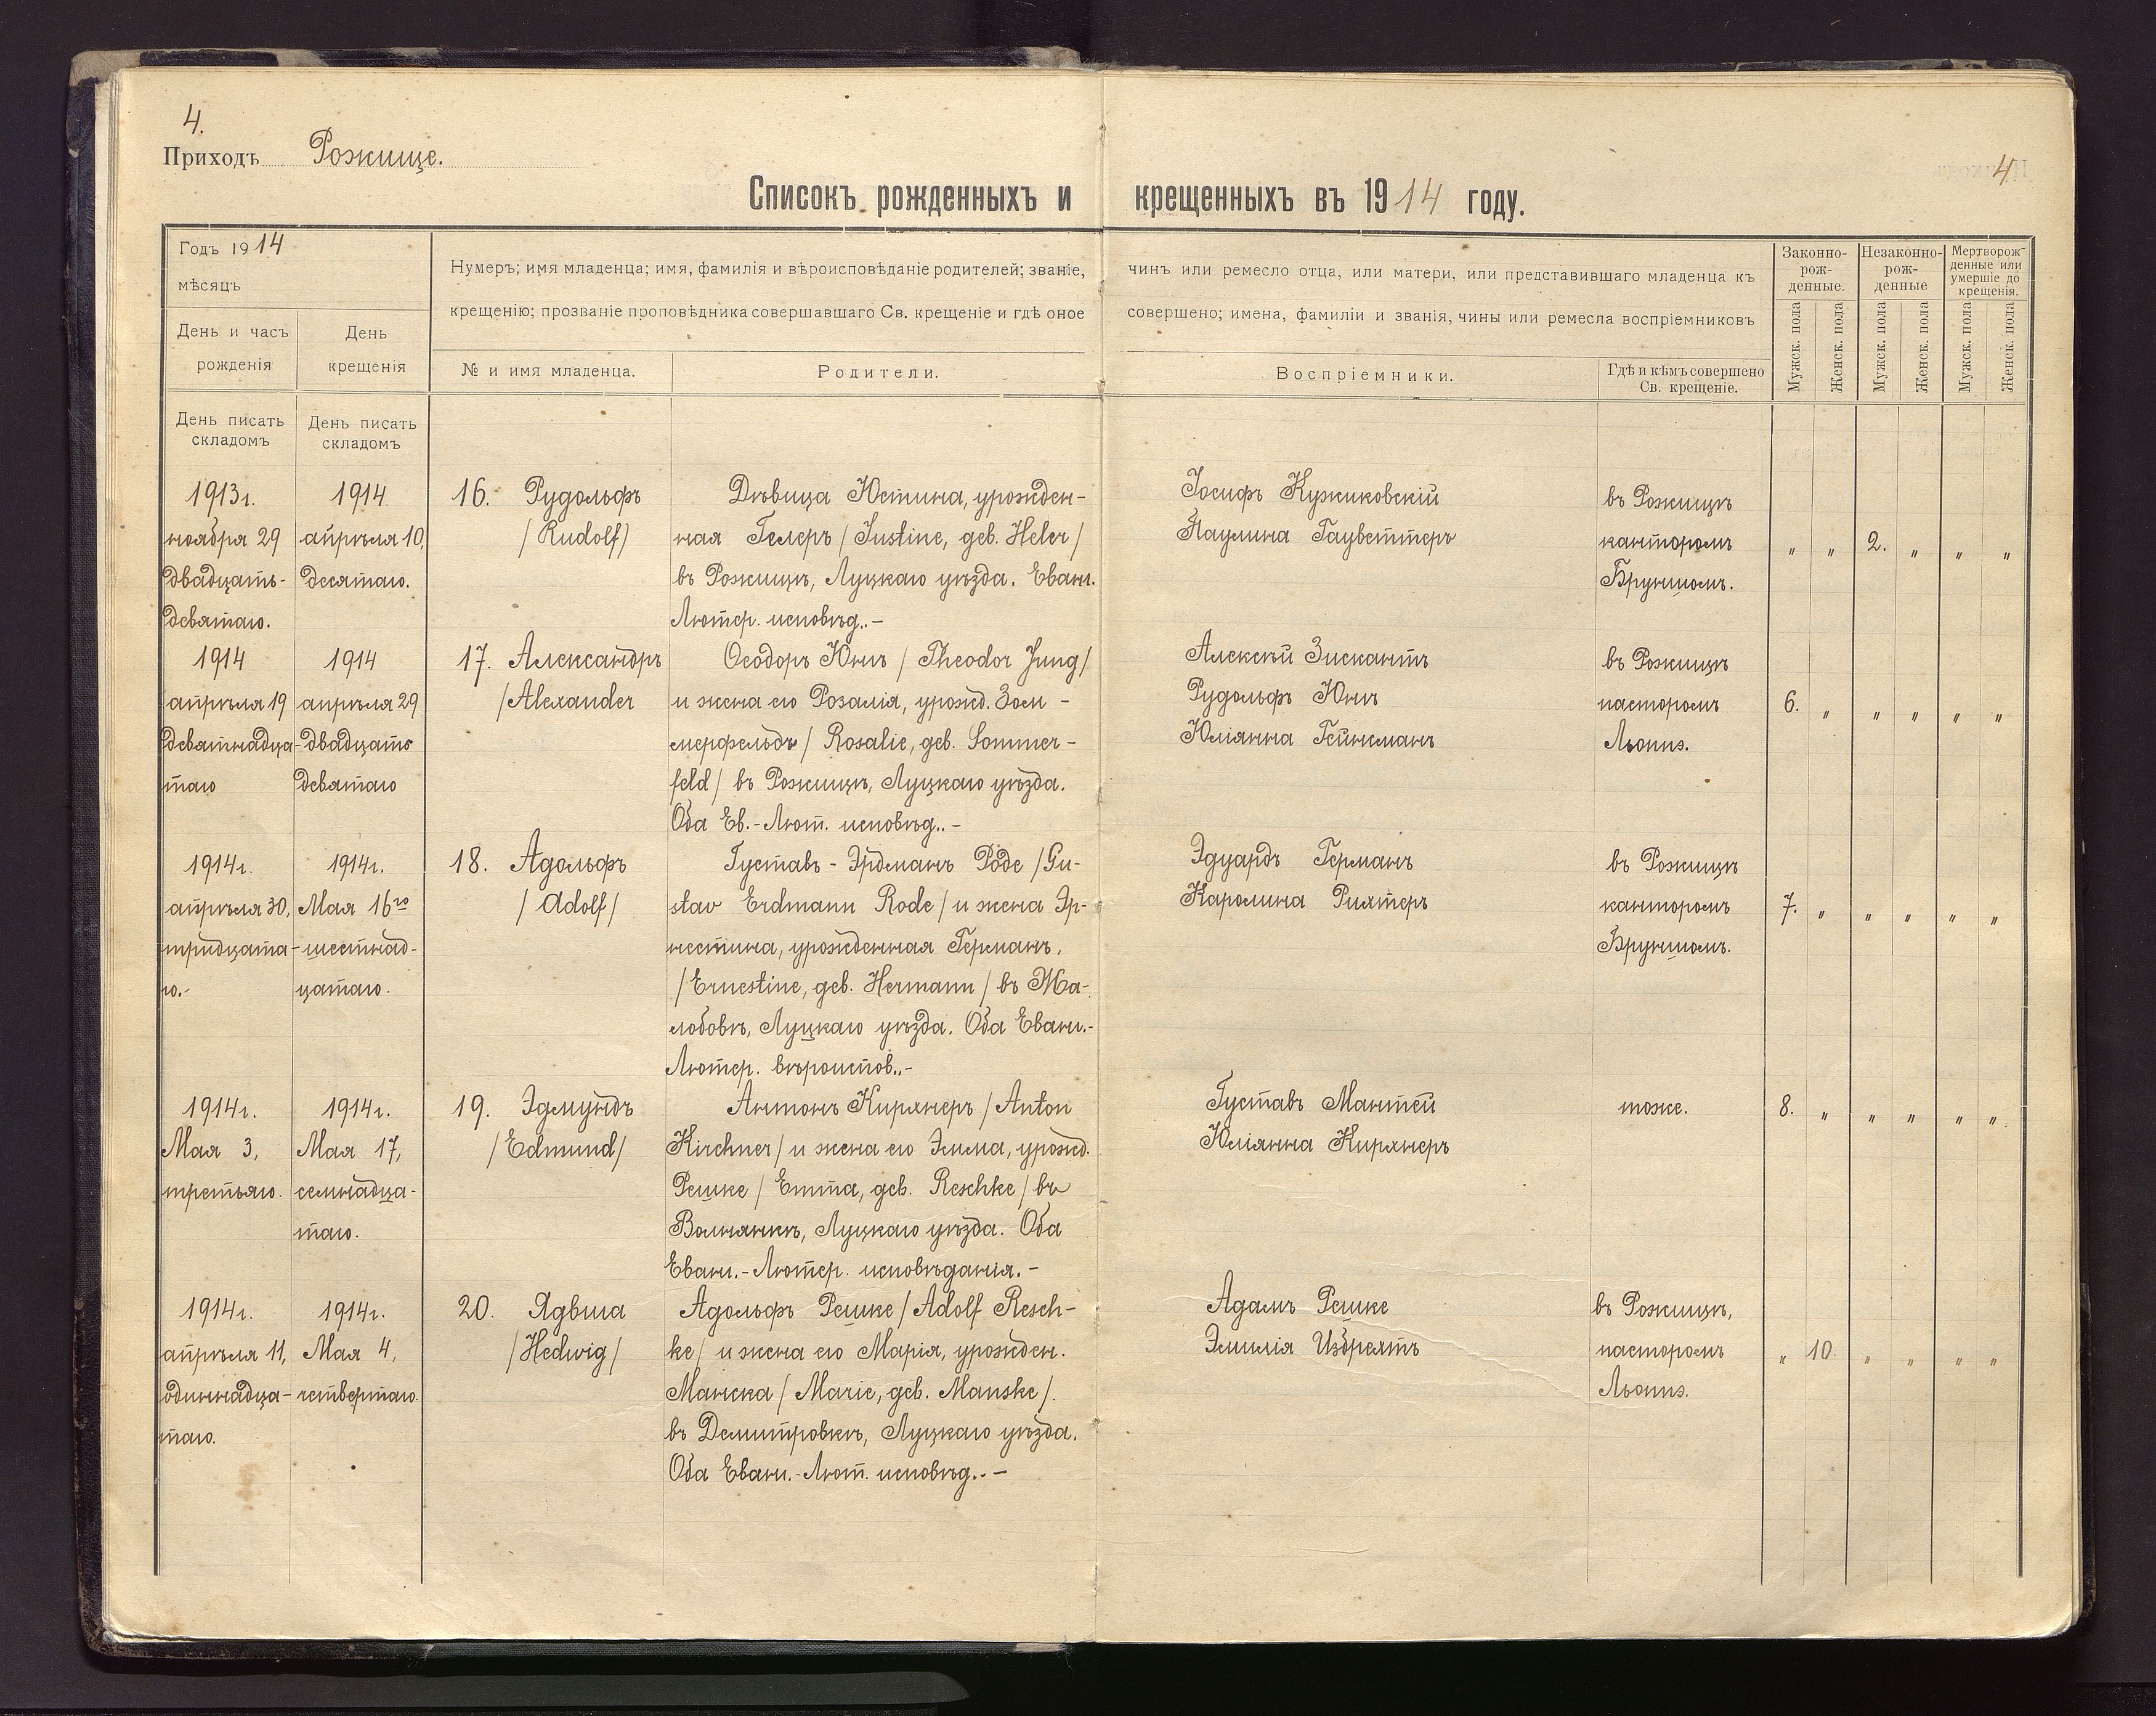 4.
Приходъ Рожище.
4
Списокъ рожденныхъ и крещенныхъ въ 1914 году.
Годъ 1914
мѣсяцъ
День и часъ
рожденія
День
крещенія
Нумеръ; имя младенца; имя, фамилія и вѣроисповѣданіе родителей; званіе, чинъ или ремесло отца, или матери, или представившаго младенца къ
крещенію; прозваніе проповѣдника совершавшаго Св. крещеніе и гдѣ оное совершено; имена, фамиліи и званія, чины или ремесла воспріемниковъ
№ и имя младенца.
Родители.
Воспріемники.
Гдѣ и кѣмъ совершено
Св. крещеніе.
Законно-
рож-
денные.
Незаконно-
рож-
денные
Мертворож-
денные или
умершіе до
крещенія.
Мужск. пола
Женск. пола
Мужск. пола
Женск. пола
Мужск. пола
Женск. пола
День писать
складомъ
День писать
складомъ
1913г.
ноября 29
двадцать-
девятаго.
1914
апрѣля 10,
десятаго.
16. Рудольфъ
/Rudolf/
Дѣвица Юстина, урожден-
ная Гелеръ / Justine, geb. Heler /
въ Рожищѣ, Луцкаго уѣзда. Еванг.
Лютер. исповѣд..-
Іосифъ Кужиковскій
Паулина Гауветтеръ
въ Рожищѣ
канторомъ
Бруншомъ.
" " 2. " " "
1914
апрѣля 19
девятнадца-
таго
1914
апрѣля 29
двадцать
девятаго
17. Александръ
/Alexander
Ѳеодоръ Юнгъ / Theodor Jung/
и жена его Розалія, урожд. Зом-
мерфельдъ / Rosalie, geb. Sommer-
feld / въ Рожищѣ, Луцкаго уѣзда.
Оба Ев.-Лют. исповѣд..-
Алексѣй Зискантъ
Рудольфъ Юнгъ
Юліянна Гейнсманъ
въ Рожищѣ
пасторомъ
6. " " " " "
1914г.
апрѣля 30,
тридцата-
го.-
1914г.
Мая 16го
шестнад-
цатаго.
18. Адольфъ
/ Adolf /
Густавъ - Эрдманъ Роде / Gu-
stav Erdmann Rode / и жена Эр-
нестина, урожденная Германъ,
/ Ernestine, geb. Hermann / въ Жа-
лобовѣ, Луцкаго уѣзда. Оба Еванг.-
Лютер. вѣроиспов..-
Эдуардъ Германъ
Каролина Рихтеръ
въ Рожищѣ
канторомъ
Бруншомъ.
7. " " " " "
1914г.
Мая 3,
третьяго.
1914г.
Мая 17,
семнадца-
таго.
19. Эдмундъ
/Edmund/
Антонъ Кирхнеръ / Anton
Kirchner / и жена его Эмма, урожд.
Решке / Emma, geb. Reschke / въ
Волнянкѣ, Луцкаго уѣзда. Оба
Еванг.-Лютер. исповѣданія.-
Густавъ Мантей
Юліянна Кирхнеръ
тоже.
8. " " " " "
1914г.
апрѣля 11,
одиннадца-
таго.
1914г.
Мая 4,
четвертаго.
20. Ядвига
/Hedwig/
Адольфъ Решке / Adolf Resch-
ke / и жена его Марія, урожден.
Манска / Marie, geb. Manske /.
въ Демитровкѣ, Луцкаго уѣзда.
Оба Еванг.-Лют. исповѣд..-
Адамъ Решке
Эмилія Избрехтъ
въ Рожищѣ,
пасторомъ
" 10. " " " "